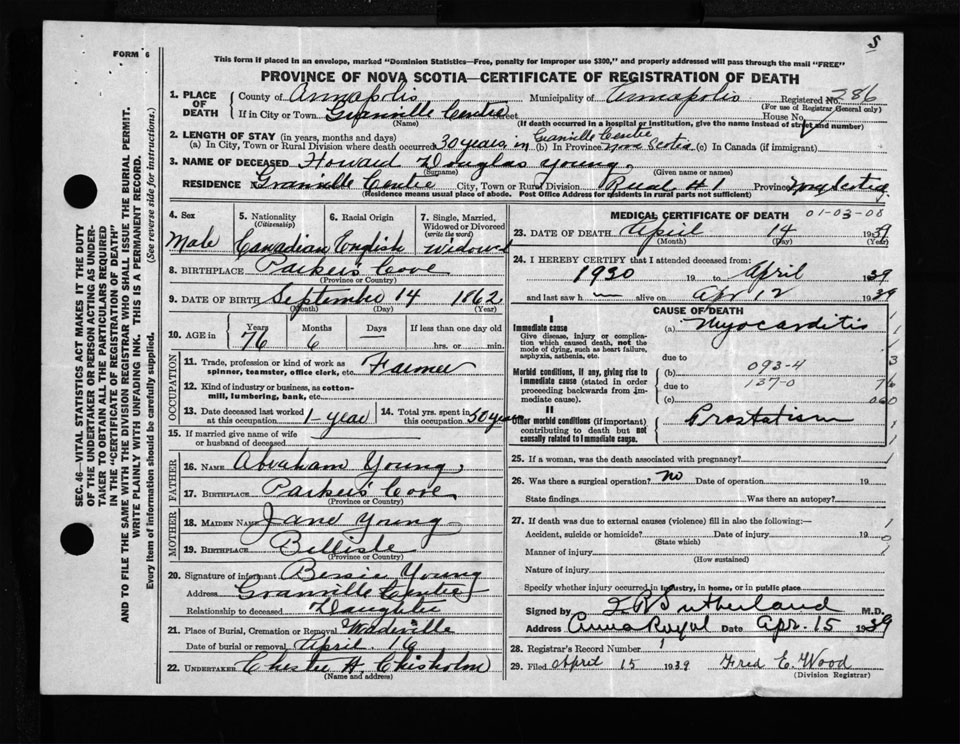 S
FORM 6
This form if placed in an envelope, marked "Dominion Statistics—Free, penalty for improper use $300," and properly addressed will pass through the mail "FREE"
PROVINCE OF NOVA SCOTIA—CERTIFICATE OF REGISTRATION OF DEATH
1. PLACE OF DEATH County of Annapolis Municipality of Annapolis Registered No. 286
(For use of Registrar General only)
If in City or Town Granville Centre Street House No.
(Name) (If death occurred in a hospital or institution, give the name instead of street and number)
2. LENGTH OF STAY (in years, months and days) Granville Centre
(a) In City, Town or Rural Division where death occurred 30 years in (b) In Province Nova Scotia (c) In Canada (if immigrant)
3. NAME OF DECEASED Howard Douglas Young
(Surname) (Given name or names)
RESIDENCE Granville Centre City, Town or Rural Division Rural #1 Province Nova Scotia
(Residence means usual place of abode. Post Office Address for residents in rural parts not sufficient)
4. Sex Male
5. Nationality (Citizenship) Canadian
6. Racial Origin English
7. Single, Married, Widowed or Divorced (write the word) Widowed
8. BIRTHPLACE Parkers Cove
(Province or Country)
9. DATE OF BIRTH September 14 1862
(Month) (Day) (Year)
10. AGE in Years 76 Months 6 Days — If less than one day old
hrs. or min.
OCCUPATION
11. Trade, profession or kind of work as spinner, teamster, office clerk, etc. Farmer
12. Kind of industry or business, as cotton-mill, lumbering, bank, etc.
13. Date deceased last worked at this occupation 1 year
14. Total yrs. spent in this occupation 50 years
15. If married give name of wife or husband of deceased
FATHER
16. NAME Abraham Young
17. BIRTHPLACE Parkers Cove
(Province or Country)
MOTHER
18. MAIDEN NAME Jane Young
19. BIRTHPLACE Bellisle
(Province or Country)
20. Signature of informant Bessie Young
Address Granville Centre
Relationship to deceased Daughter
21. Place of Burial, Cremation or Removal Wadeville
Date of burial or removal April 16
22. UNDERTAKER Chester H. Chisholm
(Name and address)
MEDICAL CERTIFICATE OF DEATH 01-03-08
23. DATE OF DEATH April 14 1939
(Month) (Day) (Year)
24. I HEREBY CERTIFY that I attended deceased from:
1930 19 to April 1939
and last saw h im alive on Apr 12 1939
CAUSE OF DEATH
I
Immediate cause
Give disease, injury or complication which caused death, not the mode of dying, such as heart failure, asphyxia, asthenia, etc.
(a) Myocarditis
due to
Morbid conditions, if any, giving rise to immediate cause (stated in order proceeding backwards from immediate cause).
(b) 093-4
due to 137-0
(c)
II
Other morbid conditions (if important) contributing to death but not causally related to immediate cause.
Prostatism
25. If a woman, was the death associated with pregnancy?
26. Was there a surgical operation? no Date of operation 19
State findings Was there an autopsy?
27. If death was due to external causes (violence) fill in also the following:—
Accident, suicide or homicide? Date of injury 19
(State which)
Manner of injury
(How sustained)
Nature of injury
Specify whether injury occurred in industry, in home, or in public place
Signed by Sutherland M.D.
Address Anna Royal Date Apr. 15 1939
28. Registrar's Record Number
29. Filed April 15 1939 Fred E. Wood
(Division Registrar)
SEC. 46—VITAL STATISTICS ACT MAKES IT THE DUTY
OF THE UNDERTAKER OR PERSON ACTING AS UNDER-
TAKER TO OBTAIN ALL THE PARTICULARS REQUIRED
IN THE "CERTIFICATE OF REGISTRATION OF DEATH"
AND TO FILE THE SAME WITH THE DIVISION REGISTRAR WHO SHALL ISSUE THE BURIAL PERMIT.
WRITE PLAINLY WITH UNFADING INK. THIS IS A PERMANENT RECORD.
Every item of information should be carefully supplied. (See reverse side for instructions.)